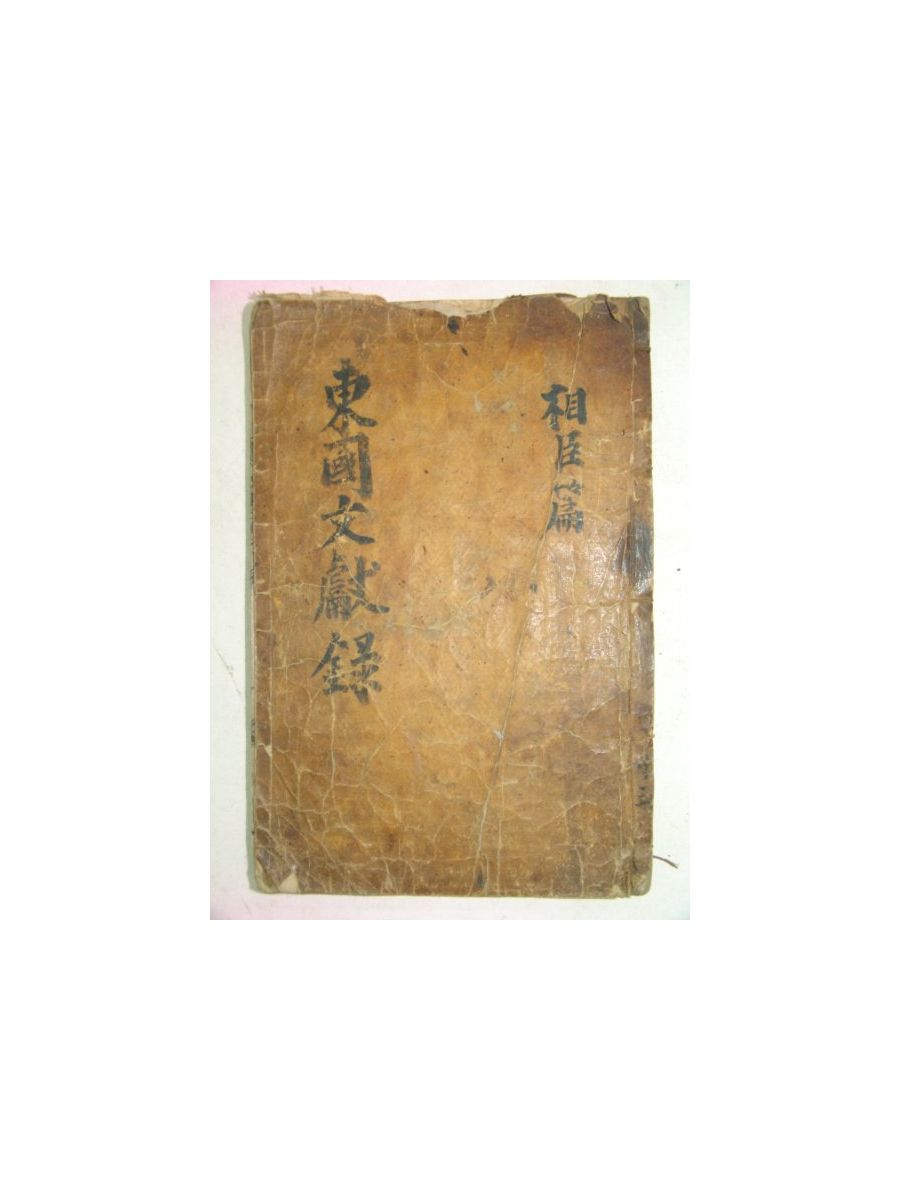 相臣篇
東國文獻錄